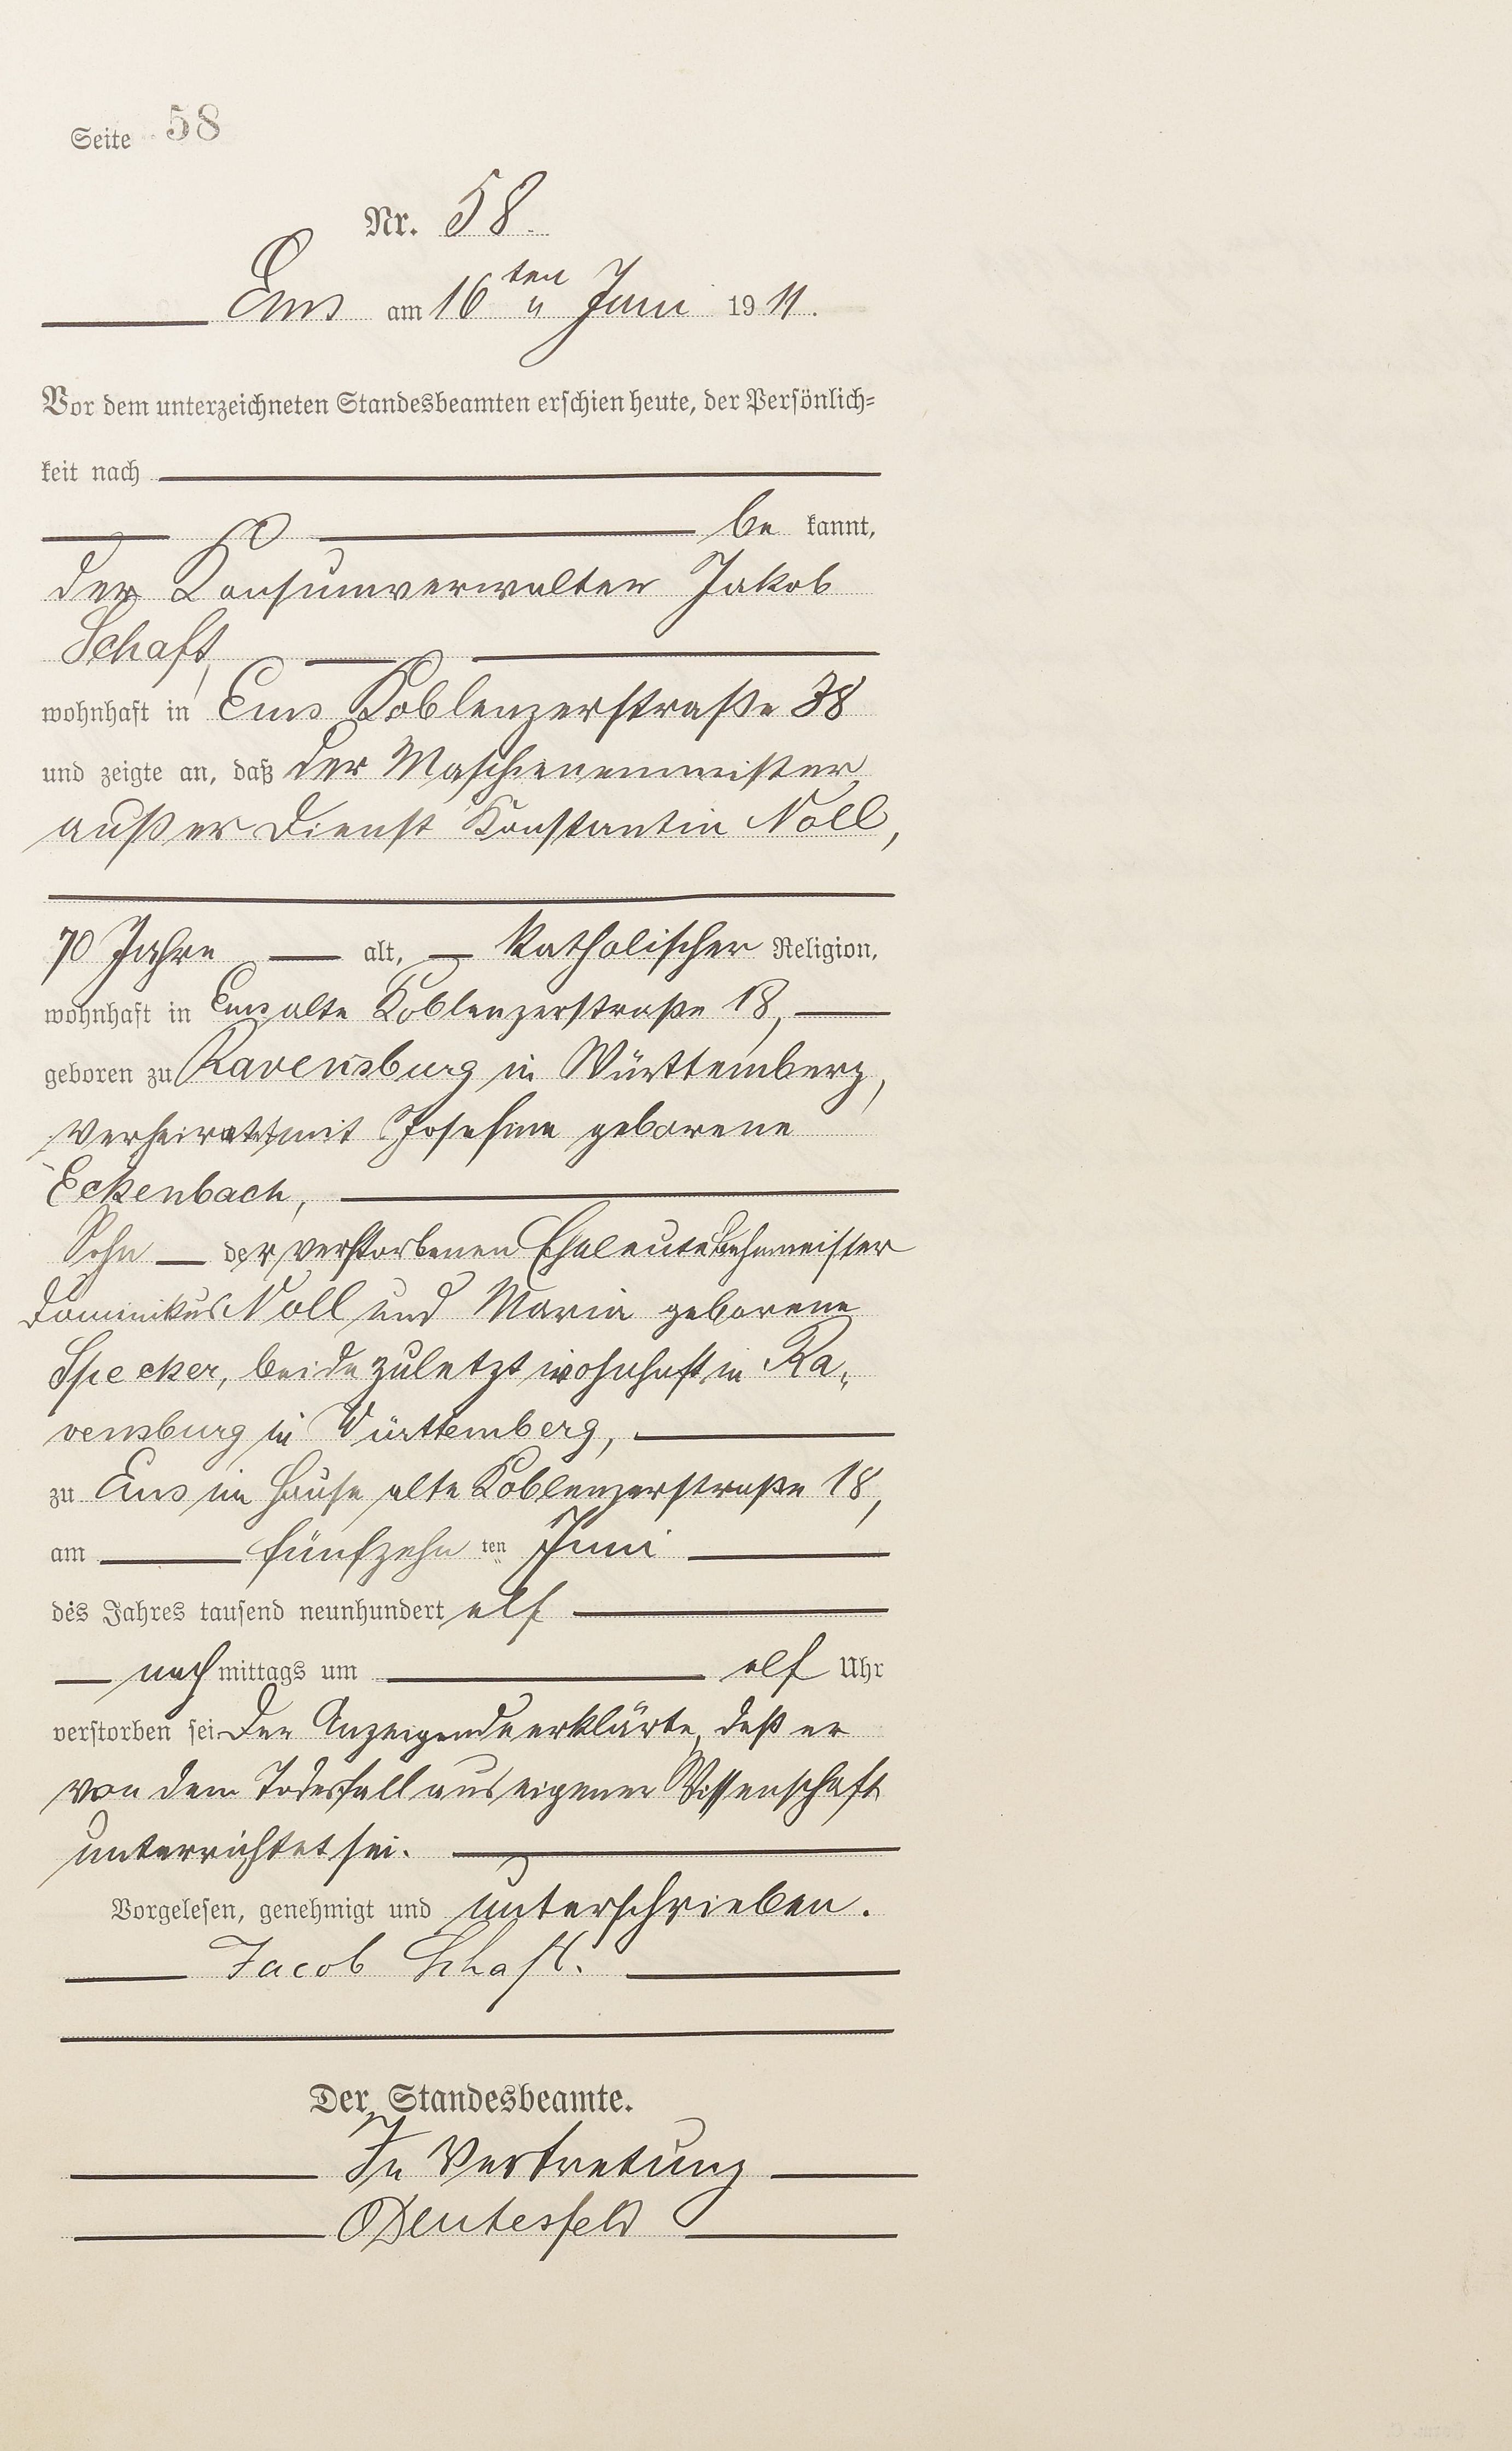 Seite 58
Nr. 58.
Ems am 16ten Juni 1911.
Vor dem unterzeichneten Standesbeamten erschien heute, der Persönlich=
keit nach
be kannt,
der Konsumverwalter Jakob
Schaft,
wohnhaft in Ems Koblenzerstraße 38
und zeigte an, daß der Maschienenmeister
außer Dienst Konstantin Noll,
70 Jahre alt, katholischer Religion,
wohnhaft in Ems alte Koblenzerstraße 18,
geboren zu Ravensburg in Württemberg,
verheiratet mit Josefine geborene
Eckenbach,
Sohn der verstorbenen Eheleute Bahnmeister
Dominikus Noll und Maria geborene
Specker, beide zuletzt wohnhaft in Ra„
vensburg in Württemberg,
zu Ems im Hause alte Koblenzerstraße 18,
am fünfzehn ten Juni
des Jahres tausend neunhundert elf
nach mittags um elf Uhr
verstorben sei. Der Anzeigende erklärte, daß er
von dem Todesfall aus eigener Wissenschaft
unterrichtet sei.
Vorgelesen, genehmigt und unterschrieben.
Jacob Schaft.
Der Standesbeamte.
In Vertretung